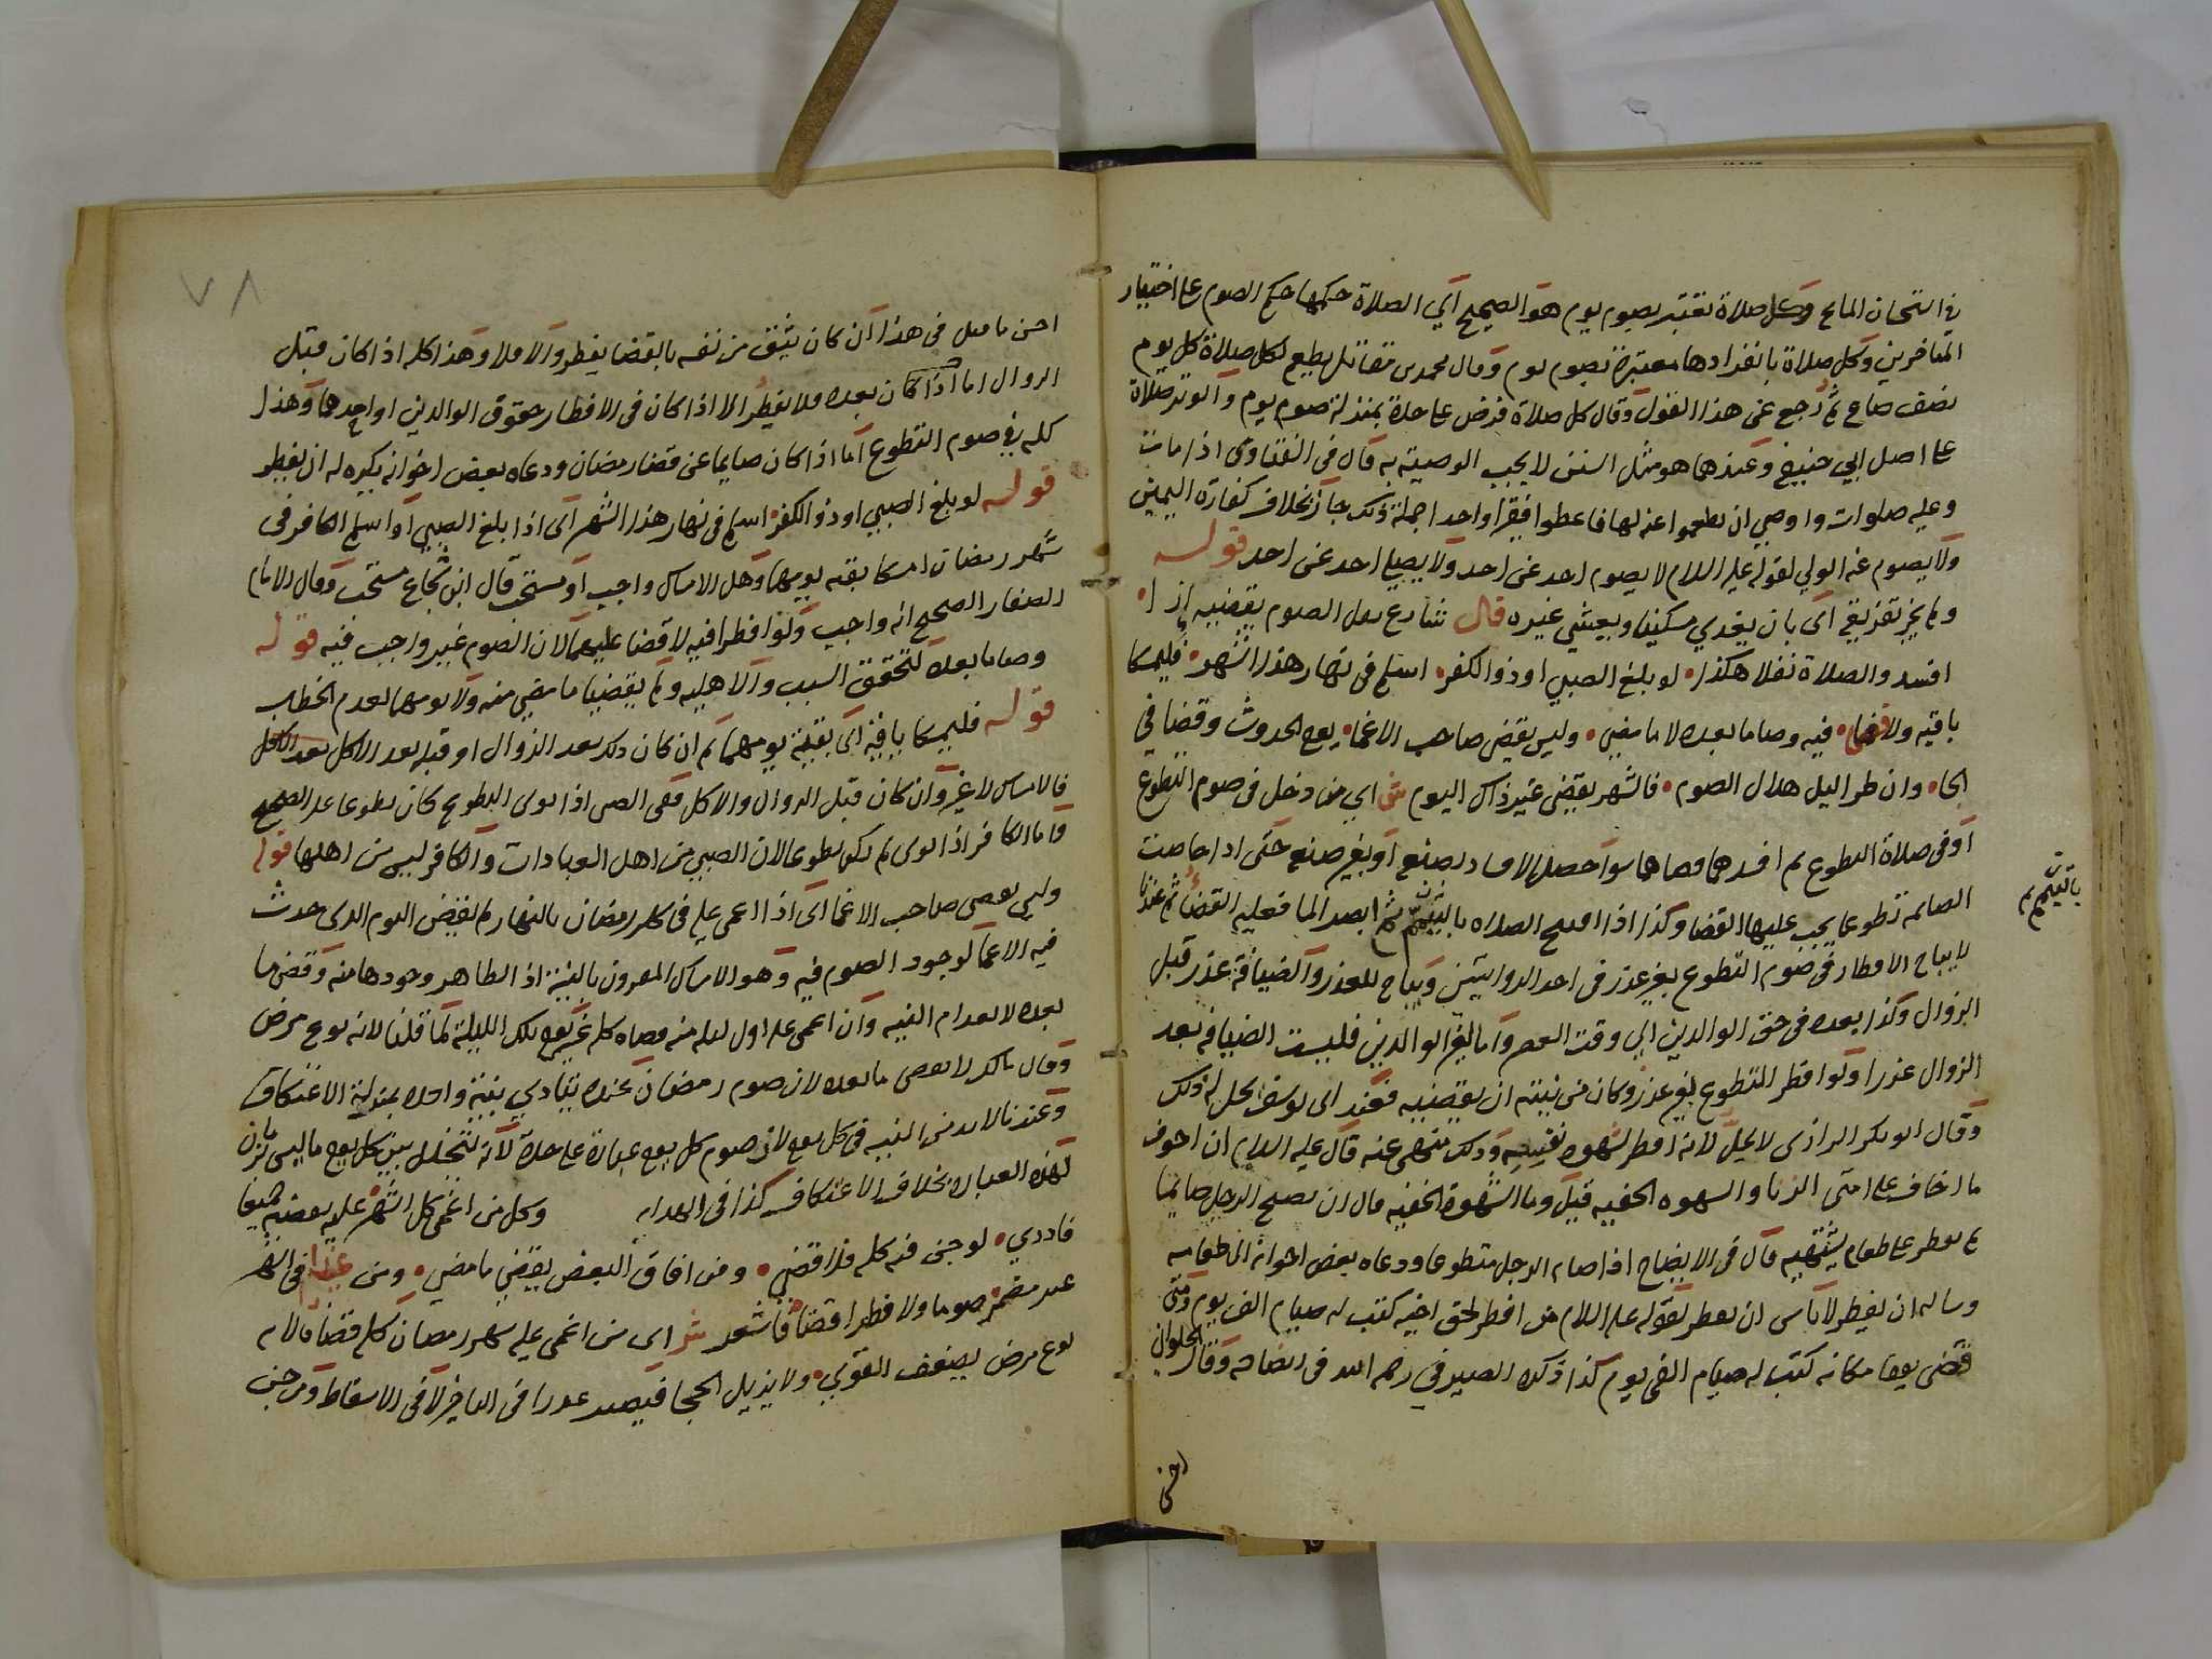 في استحسان المشايخ وكل صلاة تعتبر بصوم يوم هو الصحيح اي الصلاة حكمها حكم الصوم على اختيار
المتاخرين وكل صلاة بانفرادها معتبرة بصوم يوم وقال محمد بن مقاتل يطعم لكل صلاة كل يوم
نصف صاع ثم رجع عن هذا القول وقال كل صلاة فرض على حدة بمنزلة صوم يوم والوتر صلاة
على اصل ابي حنيفة وعندهما هو مثل السنن لا يجب الوصية به قال في الفتاوى اذا مات
وعليه صلوات واوصى ان يطعموا عنه لها فاعطوا فقيرا واحدا جملة ذلك جاز بخلاف كفارة اليمين
ولا يصوم عنه الولي لقوله عليه السلام لا يصوم احد عن احد ولا يصلي احد عن احد قوله
ولم يجز تفريق اي بان يغدي مسكينا ويعشي غيره قال شارع نفل الصوم يقضيه اذا
افسد والصلاة نفلا هكذا لو بلغ الصبي او ذو الكفر اسلم في نهار هذا الشهر فليمسكا
باقيه ولا قضا فيه وصاما بعده لا ما مضى وليس يقض صاحب الاغما يوم الحدوث وقضا في
الجا وان طرا ليل هلال الصوم فالشهر يقضي غير ذاك اليوم ش اي من دخل في صوم التطوع
او في صلاة التطوع ثم افسدهما قضاهما سوا حصل الافساد بصنعه او بغير صنعه حتى اذا حاضت
الصائمة تطوعا يجب عليها القضا وكذا اذا افتتح الصلاة بالتيمم ثم ابصر الما فعليه القضا ثم عندنا
بالتيمم
لا يباح الافطار في صوم التطوع بغير عذر في احد الروايتين ويباح للعذر والضيافة عذر قبل
الزوال وكذا بعده في حق الوالدين الى وقت العصر واما لغير الوالدين فليست الضيافة بعد
الزوال عذرا ولو افطر المتطوع بغير عذر وكان من نيته ان يقضيه فعند ابي يوسف يحل له ذلك
وقال ابو بكر الرازي لا يحل لانه افطر لشهوة نفسه وذلك منهي عنه قال عليه السلام ان اخوف
ما اخاف على امتي الزنا والشهوة الخفية قيل وما الشهوة الخفية قال ان يصبح الرجل صائما
ثم يفطر على طعام يشتهيه قال في الايضاح اذا صام الرجل متطوعا ودعاه بعض اخوانه الى طعامه
وساله ان يفطر لا باس ان يفطر لقوله عليه السلام من افطر لحق اخيه كتب له صيام الف يوم ومتى
قضى يوما مكانه كتب له صيام الفي يوم كذا ذكره الصيرفي رحمه الله في ايضاحه وقال الحلواني
احسن
٧٨
احسن ما قيل في هذا ان كان يثق من نفسه بالقضا يفطر والا فلا وهذا كله اذا كان قبل
الزوال اما اذا كان بعده فلا يفطر الا اذا كان في الافطار حقوق الوالدين او احدهما وهذا
كله في صوم التطوع اما اذا كان صايما عن قضا رمضان ودعاه بعض اخوانه يكره له ان يفطر
قوله لو بلغ الصبي او ذو الكفر اسلم في نهار هذا الشهر اي اذا بلغ الصبي او اسلم الكافر في
شهر رمضان امسكا بقية يومهما وهل الامساك واجب او مستحب قال ابن شجاع مستحب وقال الامام
الصفار الصحيح انه واجب ولو افطرا فيه لا قضا عليهما لان الصوم غير واجب فيه قوله
وصاما بعده لتحقق السبب والاهلية ولم يقضيا ما مضى منه ولا يومهما لعدم الخطاب
قوله فليمسكا باقيه اي بقية يومهما ثم ان كان ذلك بعد الزوال او قبله بعد الاكل
فالامساك لا غير وان كان قبل الزوال والاكل ففي الصبي اذا نوى التطوع كان تطوعا على الصحيح
واما الكافر اذا نوى لم يكن تطوعا لان الصبي من اهل العبادات والكافر ليس من اهلها قوله
وليس يقضي صاحب الاغما اي اذا اغمي عليه في كل رمضان بالنهار لم يقض اليوم الذي حدث
فيه الاغما لوجود الصوم فيه وهو الامساك المقرون بالنية اذ الظاهر وجودها منه وقضى ما
بعده لانعدام النية وان اغمي عليه اول ليلة منه قضاه كله غير يوم تلك الليلة لما قلنا لانه نوع مرض
وقال مالك لا يقضي ما بعده لان صوم رمضان عنده يتادى بنية واحدة بمنزلة الاعتكاف
وعندنا لا بد من النية في كل يوم لان صوم كل يوم عبادة على حدة لانه يتخلل بين كل يوم ما ليس بزمان
لهذه العبادة بخلاف الاعتكاف كذا في الهداية وكل من اغمي كل الشهر عليه يقضيه جميعا
فادري لو جن فيه كله فلا قضي ومن افاق البعض يقضي ما مضى ومن غدا في الشهر
غير مضمر صوما ولا فطرا قضا فاشعر ش اي من اغمي عليه شهر رمضان كله قضاه لانه
نوع مرض يضعف القوى ولا يزيل الحجا فيصير عذرا في التاخير لا في الاسقاط ومن جن